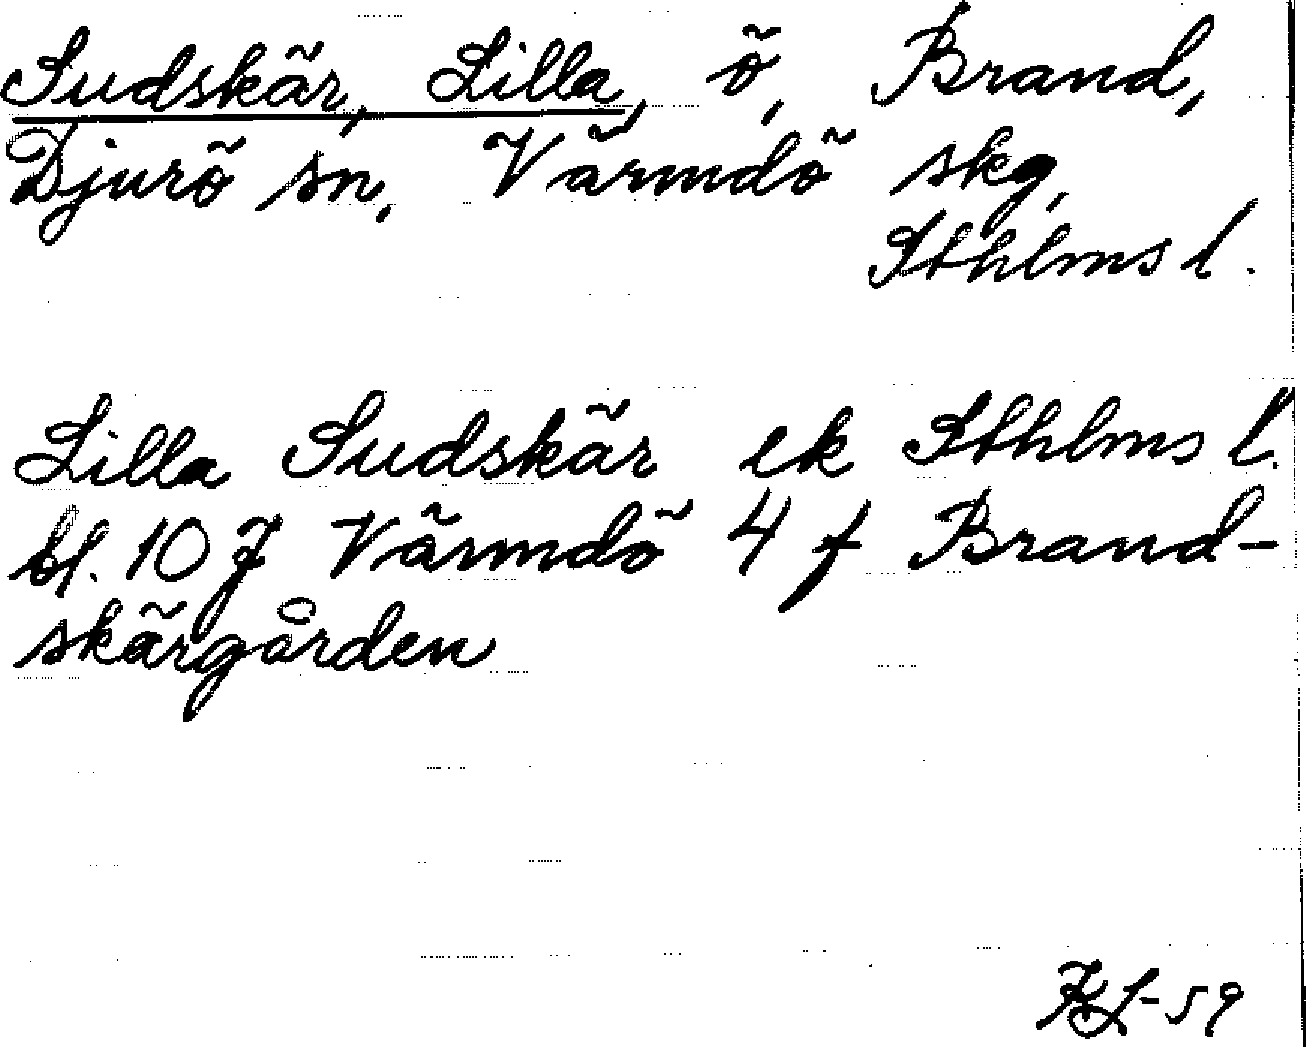 Sudskär, Lilla, ö, Brand,
Djurö sn, Värmdö skg,
Sthlms l.
Lilla Sudskär ek Sthlms l.
bl. 10 J Värmdö 4 f Brand-
skärgården
KL-59